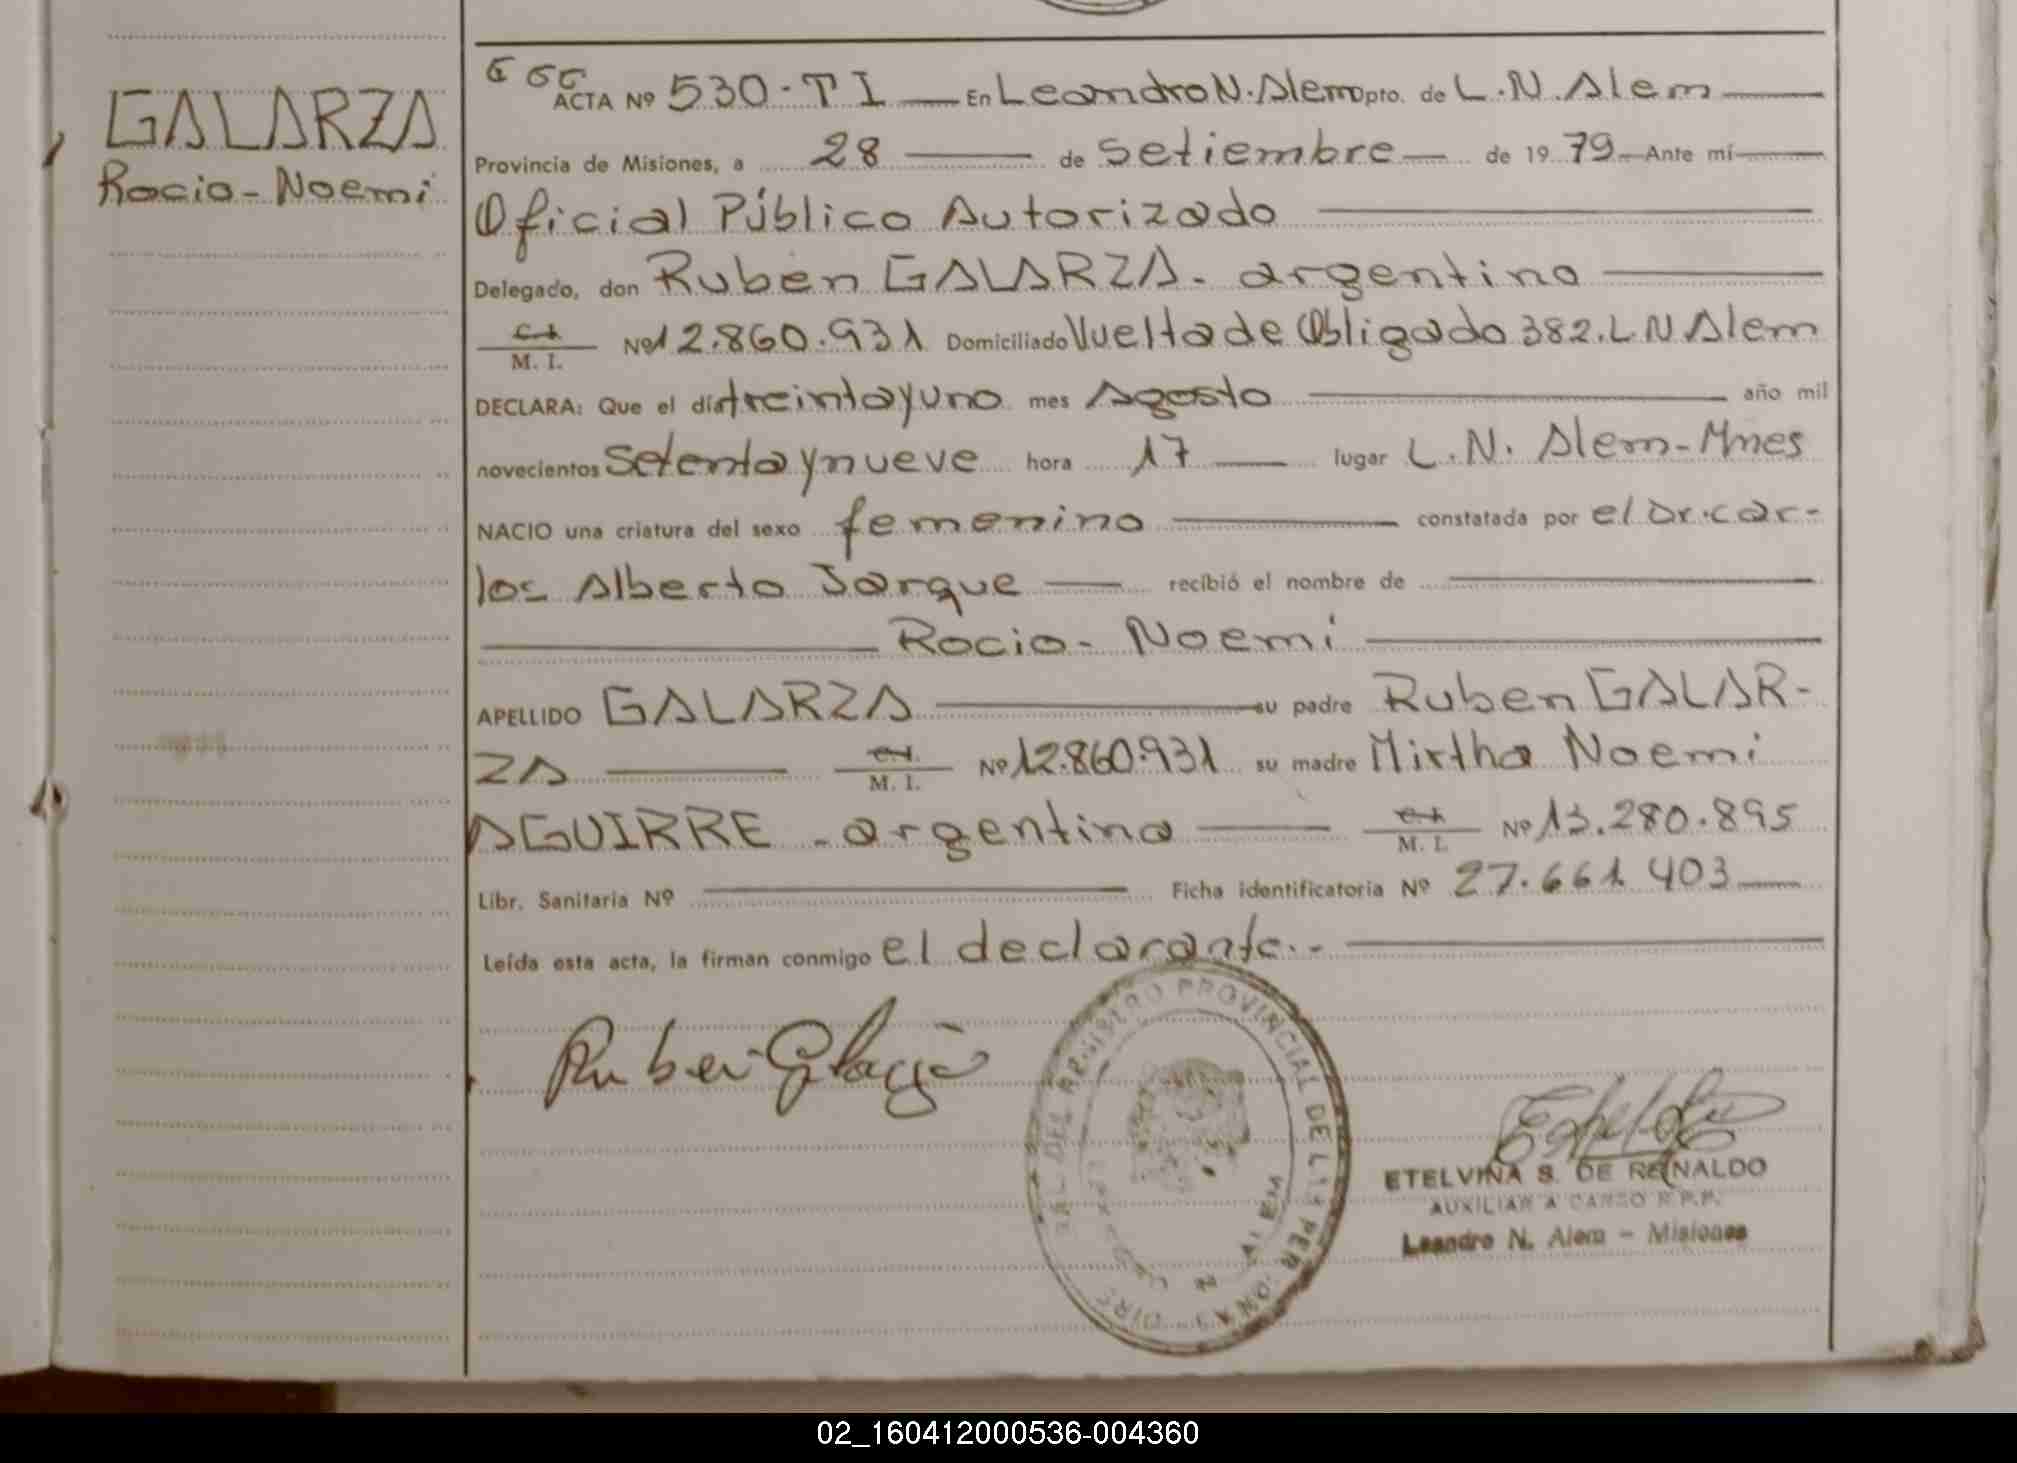 GALARZA
Rocio-Noemi
ACTA Nº 530-TI — En Leandro N. Alem Dpto. de L.N. Alem
Provincia de Misiones, a 28 — de Setiembre — de 19 79 — Ante mí
Oficial Público Autorizado
Delegado, don Ruben GALARZA - argentino
M. I. Nº 12.860.931 Domiciliado Vuelta de Obligado 382. L N Alem
DECLARA: Que el día treinta y uno mes Agosto año mil
novecientos Setenta y nueve hora 17 — lugar L.N. Alem - Mnes
NACIO una criatura del sexo femenino — constatada por el Dr. Car-
los Alberto Jarque — recibió el nombre de
Rocio - Noemi
APELLIDO GALARZA — su padre Ruben GALAR-
ZA — M. I. Nº 12.860.931 su madre Mirtha Noemi
AGUIRRE - argentina — M. I. Nº 13.280.895
Libr. Sanitaria Nº — Ficha identificatoria Nº 27.661.403
Leída esta acta, la firman conmigo el declarante.-
REGISTRO PROVINCIAL DE LAS PERSONAS
N. ALEM
ETELVINA S. DE REYNALDO
AUXILIAR A CARGO R.P.P.
Leandro N. Alem - Misiones
02_160412000536-004360